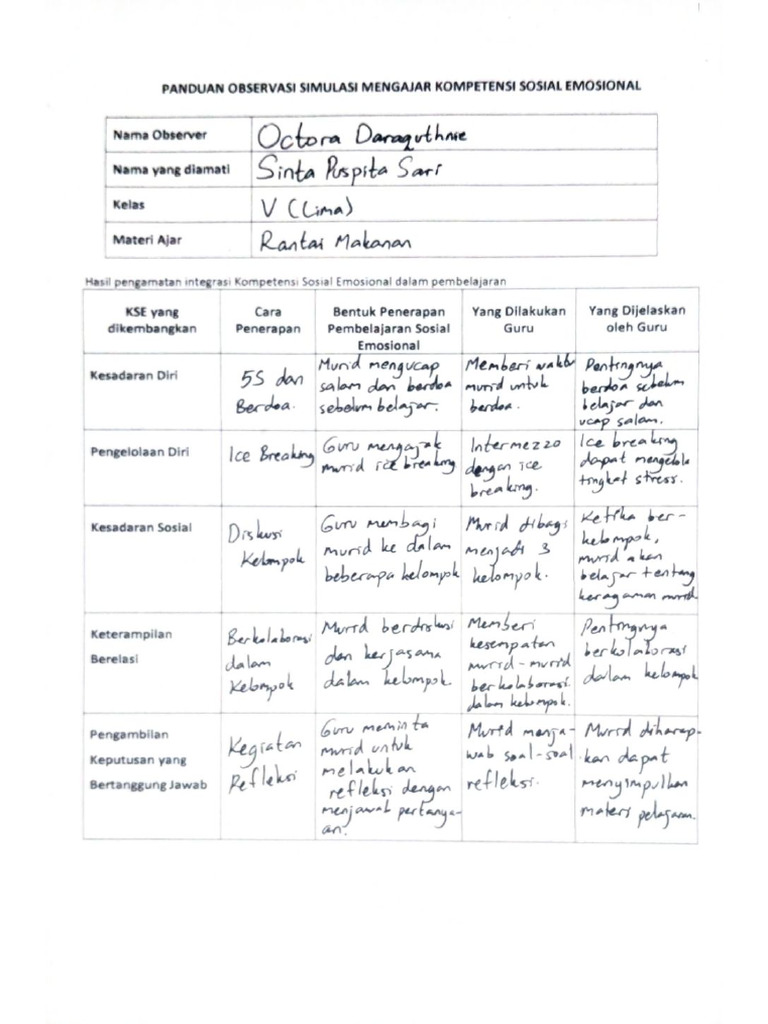 PANDUAN OBSERVASI SIMULASI MENGAJAR KOMPETENSI SOSIAL EMOSIONAL
Nama Observer Octora Daraquthnie
Nama yang diamati Sinta Puspita Sari
Kelas V (Lima)
Materi Ajar Rantai Makanan
Hasil pengamatan integrasi Kompetensi Sosial Emosional dalam pembelajaran
KSE yang
dikembangkan
Cara
Penerapan
Bentuk Penerapan
Pembelajaran Sosial
Emosional
Yang Dilakukan
Guru
Yang Dijelaskan
oleh Guru
Kesadaran Diri
5S dan
Berdoa.
Murid mengucap
salam dan berdoa
sebelum belajar.
Memberi waktu
murid untuk
berdoa.
Pentingnya
berdoa sebelum
belajar dan
ucap salam.
Pengelolaan Diri
Ice Breaking
Guru mengajak
murid ice breaking
Intermezzo
dengan ice
breaking.
Ice breaking
dapat mengelola
tingkat stress.
Kesadaran Sosial
Diskusi
Kelompok
Guru membagi
murid ke dalam
beberapa kelompok
Murid dibagi
menjadi 3
kelompok.
Ketika ber-
kelompok,
murid akan
belajar tentang
keragaman murid
Keterampilan
Berelasi
Berkolaborasi
dalam
Kelompok
Murid berdiskusi
dan kerjasama
dalam kelompok.
Memberi
kesempatan
murid-murid
berkolaborasi
dalam kelompok.
Pentingnya
berkolaborasi
dalam kelompok
Pengambilan
Keputusan yang
Bertanggung Jawab
Kegiatan
Refleksi
Guru meminta
murid untuk
melakukan
refleksi dengan
menjawab pertanya-
an.
Murid menja-
wab soal-soal
refleksi.
Murid diharap-
kan dapat
menyimpulkan
materi pelajaran.